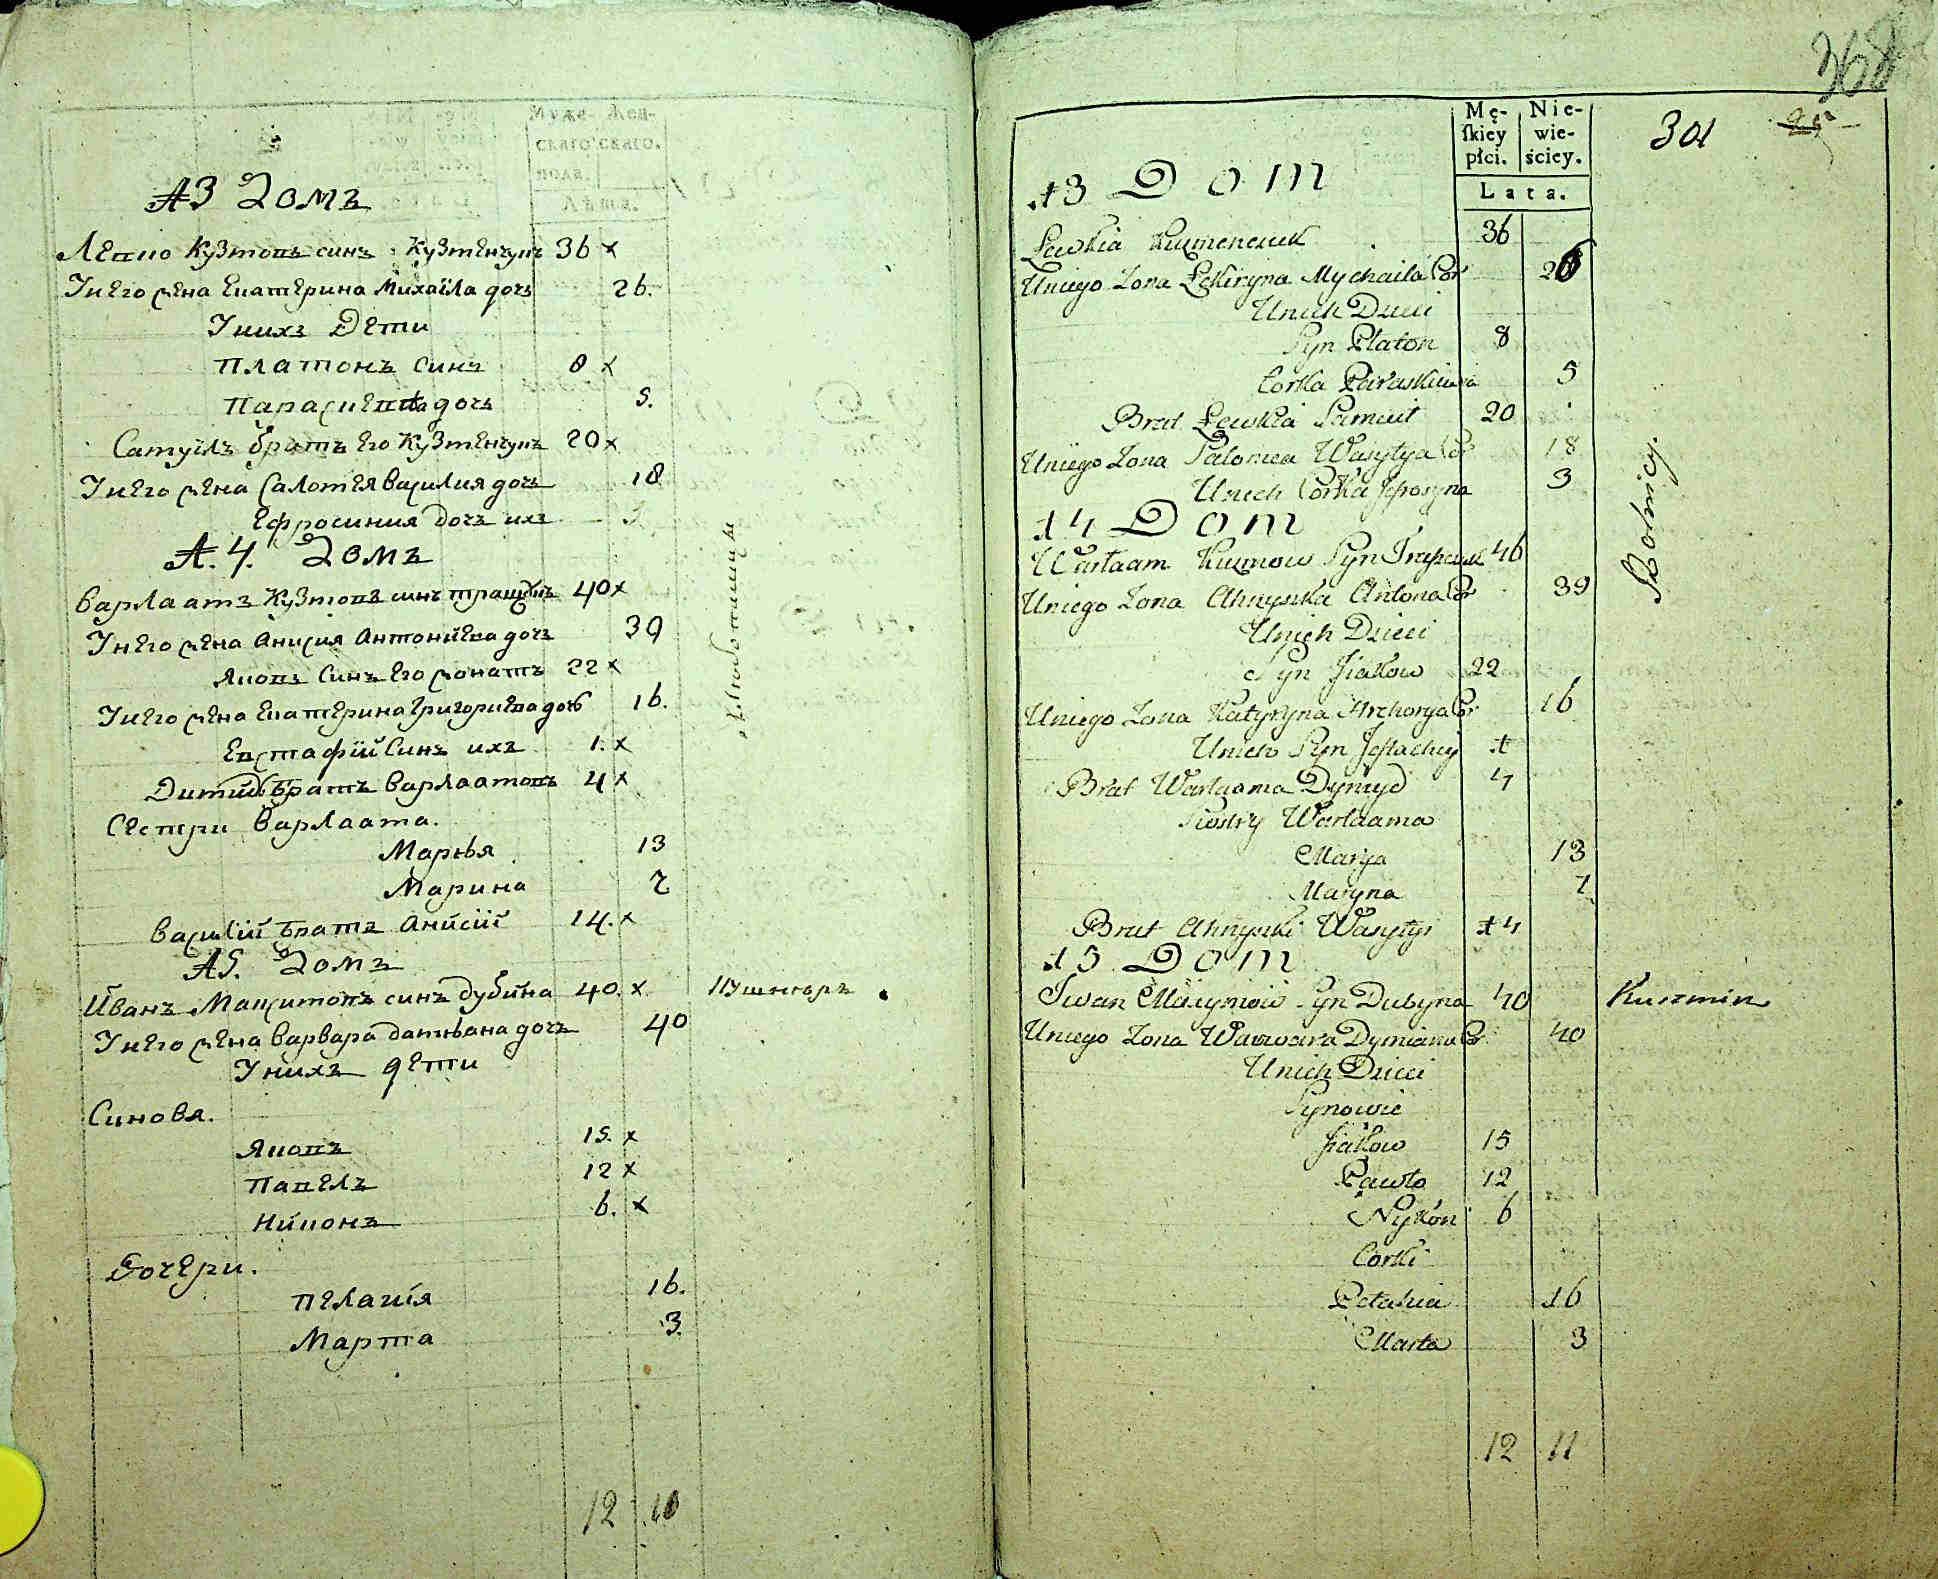 Муже- Жен-
скаго скаго.
пола.
Лѣта.
А3 Домъ
Левко Кузмовъ синъ Кузменчукъ 36 x
У него жена Екатерина Михайла дочь 26.
У нихъ Дети
Платонъ синъ 8 x
Парасиевѣа дочь 5.
Самуїлъ братъ его Кузменчукъ 20 x
У него жена Саломея василия дочь 18
Ефросиния дочь ихъ 3
А.4. Домъ
Варлаамъ Кузмовъ синъ 40 x
У него жена Анисия Антониева дочь 39
Яковъ Синъ его женатъ 22 x
У него жена Екатерина Григориева дочь 16.
Евстафий Синъ ихъ 1. x
Братъ Варлаамовъ 4 x
Сестри Варлаама.
Марѣя 13
Марина 7
Василий братъ Анисий 14. x
А5. Домъ
Иванъ Максимовъ синъ Дубина 40. x Кушниръ
У него жена Варвара Дамѣана дочь 40
У нихъ дети
Синовя.
Яковъ 15. x
Павелъ 12 x
Никонъ 6. x
Дочери.
Пелагия 16.
Марта 3.
12 10
368
Mę- Nie-
ſkiey wie-
płci. ściey.
Lata.
301
13 Dom
Lewkia Kuzmenczuk 36
Uniego Zona Lekiryna Mychaila Cor 26
Unich Dzieci
Syn Płaton 8
Corka Paraskiewia 5
Brat Lewkia Samuit 20
Uniego Zona Salomea Wasylya Cor 18
Unich Corka Jefroszyna 3
14 Dom
Warłaam Kuzmow Syn 46
Uniego Zona Ahnyszka Antona Cor 39
Unich Dzieci
Syn Jiakow 22
Uniego Zona Katyryna Hrehorya Cor 16
Unich Syn Jestachiy 1
Brat Warłaama Dymyd 4
Siostry Warłaama
Marya 13
Maryna 7
Brat Ahnyszki Wasylyi 14
15 Dom
Iwan Maxymow Syn Dubyna 40 Kusznier
Uniego Zona Warwara Dymiana Cor 40
Unich Dzieci
Synowie
Jiakow 15
Pawło 12
Nykon 6
Corki
Pełahia 16
Marta 3
Rolnicy.
12 11